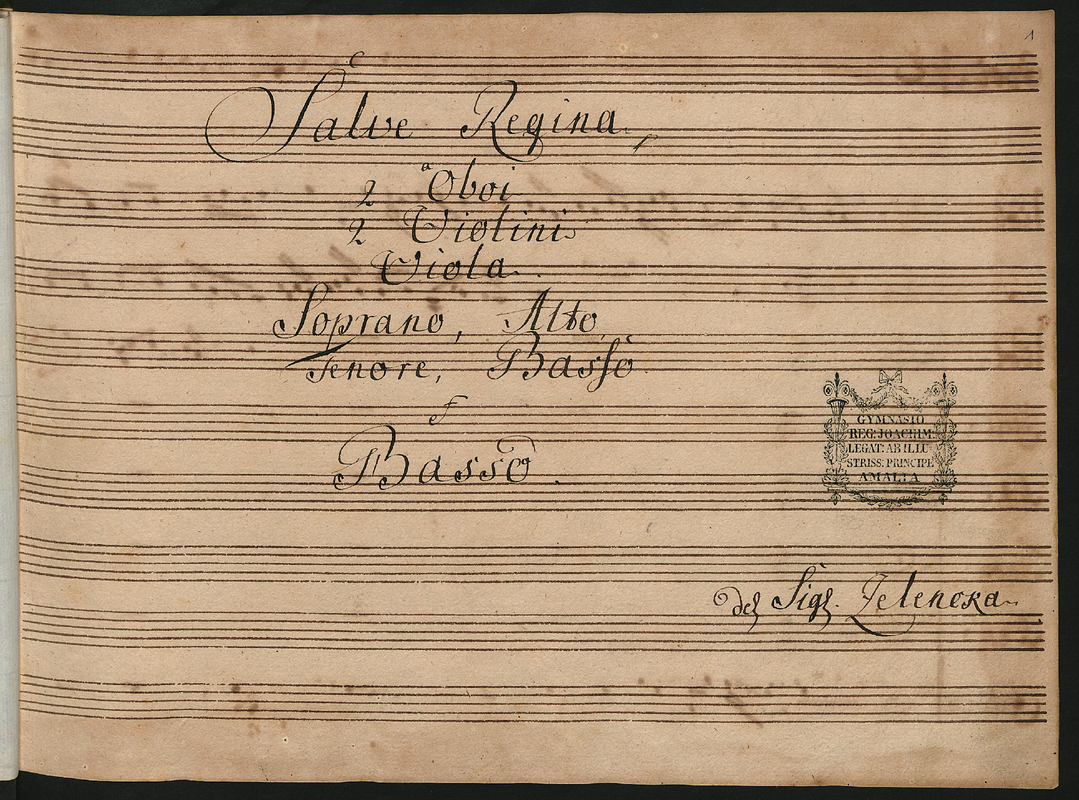 1
Salve Regina.
a
2 Oboi
2 Violini
Viola.
Soprano, Alto,
Tenore, Basso
et
Basso.
GYMNASIO
REG: JOACHIM:
LEGAT: AB ILLU-
STRISS: PRINCIPE
AMALIA
del Sigl. Zelencka